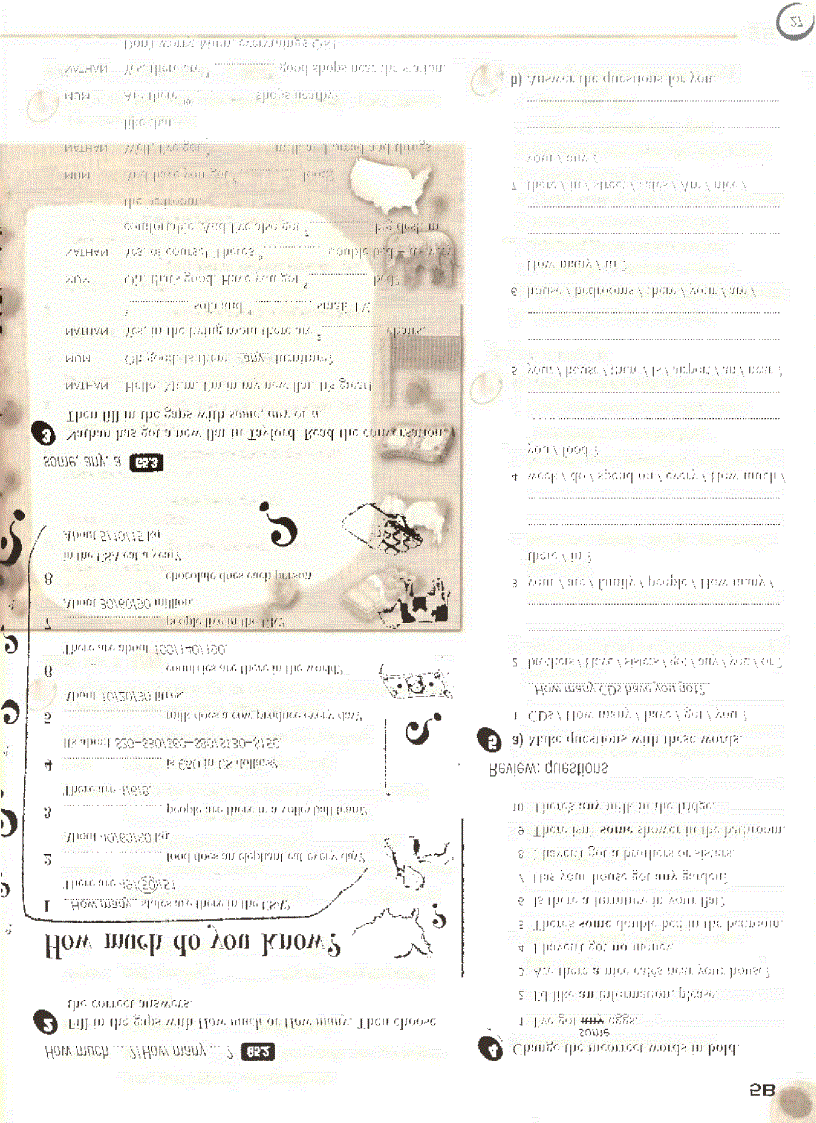 5B
How much ... ?/How many ... ? G5.2
2 Fill in the gaps with How much or How many. Then choose
the correct answers.
How much do you know?
1 How many states are there in the USA?
There are 49/50/51.
2 food does an elephant eat every day?
About
3 people are there in a volleyball team?
There are 4/6/8.
4 is £50 in US dollars?
It's about
5 milk does a cow produce every day?
About 10/20/30 litres.
6 countries are there in the world?
There are about
7 people live in the UK?
About 30/60/90 million.
8 chocolate does each person
in the USA eat a year?
About 5/10/15 kg.
some, any, a G5.3
3 Nathan has got a new flat in Taylord. Read the conversation.
Then fill in the gaps with some, any or a.
NATHAN Hello, Mum. I'm in my new flat. It's great!
MUM Oh good. Is there any furniture?
NATHAN Yes, in the living room there are chairs,
sofa and small TV.
MUM Oh, that's good. Have you got bed?
NATHAN Yes, of course! There's double bed – it's very
comfortable. And I've also got big desk in
the bedroom.
MUM And have you got food?
NATHAN Well, I've got milk and bread and things
like that.
MUM Are there shops nearby?
NATHAN Yes, there are good shops near the station.
Don't worry, Mum, everything's OK!
4 Change the incorrect words in bold.
some
1 I've got any eggs.
2 I'd like an information, please.
3 Are there a nice cafés near your house?
4 I haven't got no money.
5 There's some double bed in the bedroom.
6 Is there a furniture in your flat?
7 Has your house got any garden?
8 I haven't got a brothers or sisters.
9 There isn't some shower in the bathroom.
10 There's any milk in the fridge.
Review: questions
5 a) Make questions with these words.
1 CDs / How many / have / got / you ?
How many CDs have you got?
2 brothers / Have / sisters / got / any / you / or ?
3 your / are / family / people / How many /
there / in ?
4 week / do / spend on / every / How much /
you / food ?
5 your / house / there / Is / airport / an / near ?
6 house / bedrooms / there / your / are /
How many / in ?
7 there / in / street / cafés / Are / nice /
your / any ?
b) Answer the questions for you.
27